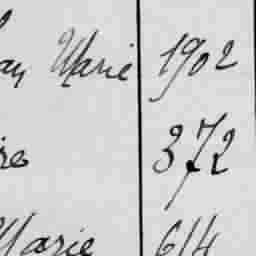 Marie 1902
372
Marie 614